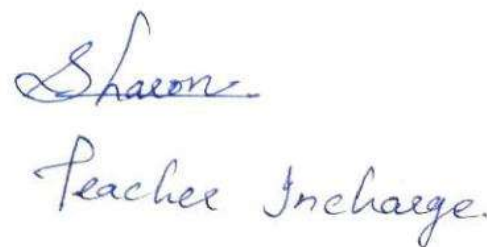 Sharon.
Teacher Incharge.